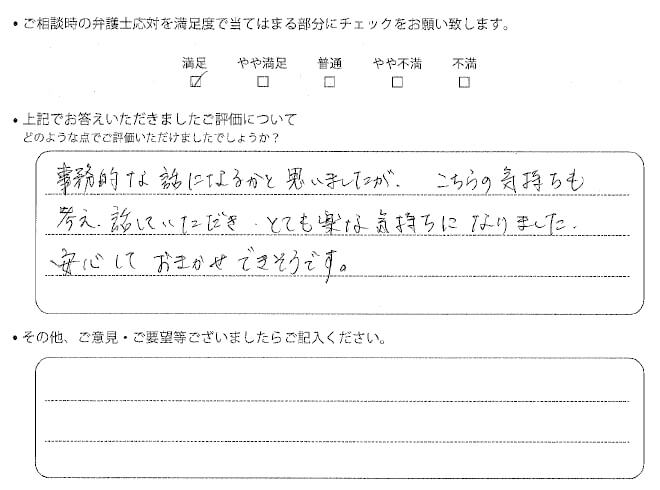 • ご相談時の弁護士応対を満足度で当てはまる部分にチェックをお願い致します。
満足 やや満足 普通 やや不満 不満
☑ □ □ □ □
• 上記でお答えいただきましたご評価について
どのような点でご評価いただけましたでしょうか？
事務的な話になるかと思いましたが、こちらの気持ちも
考え、話していただき、とても楽な気持ちになりました。
安心して おまかせ できそうです。
• その他、ご意見・ご要望等ございましたらご記入ください。